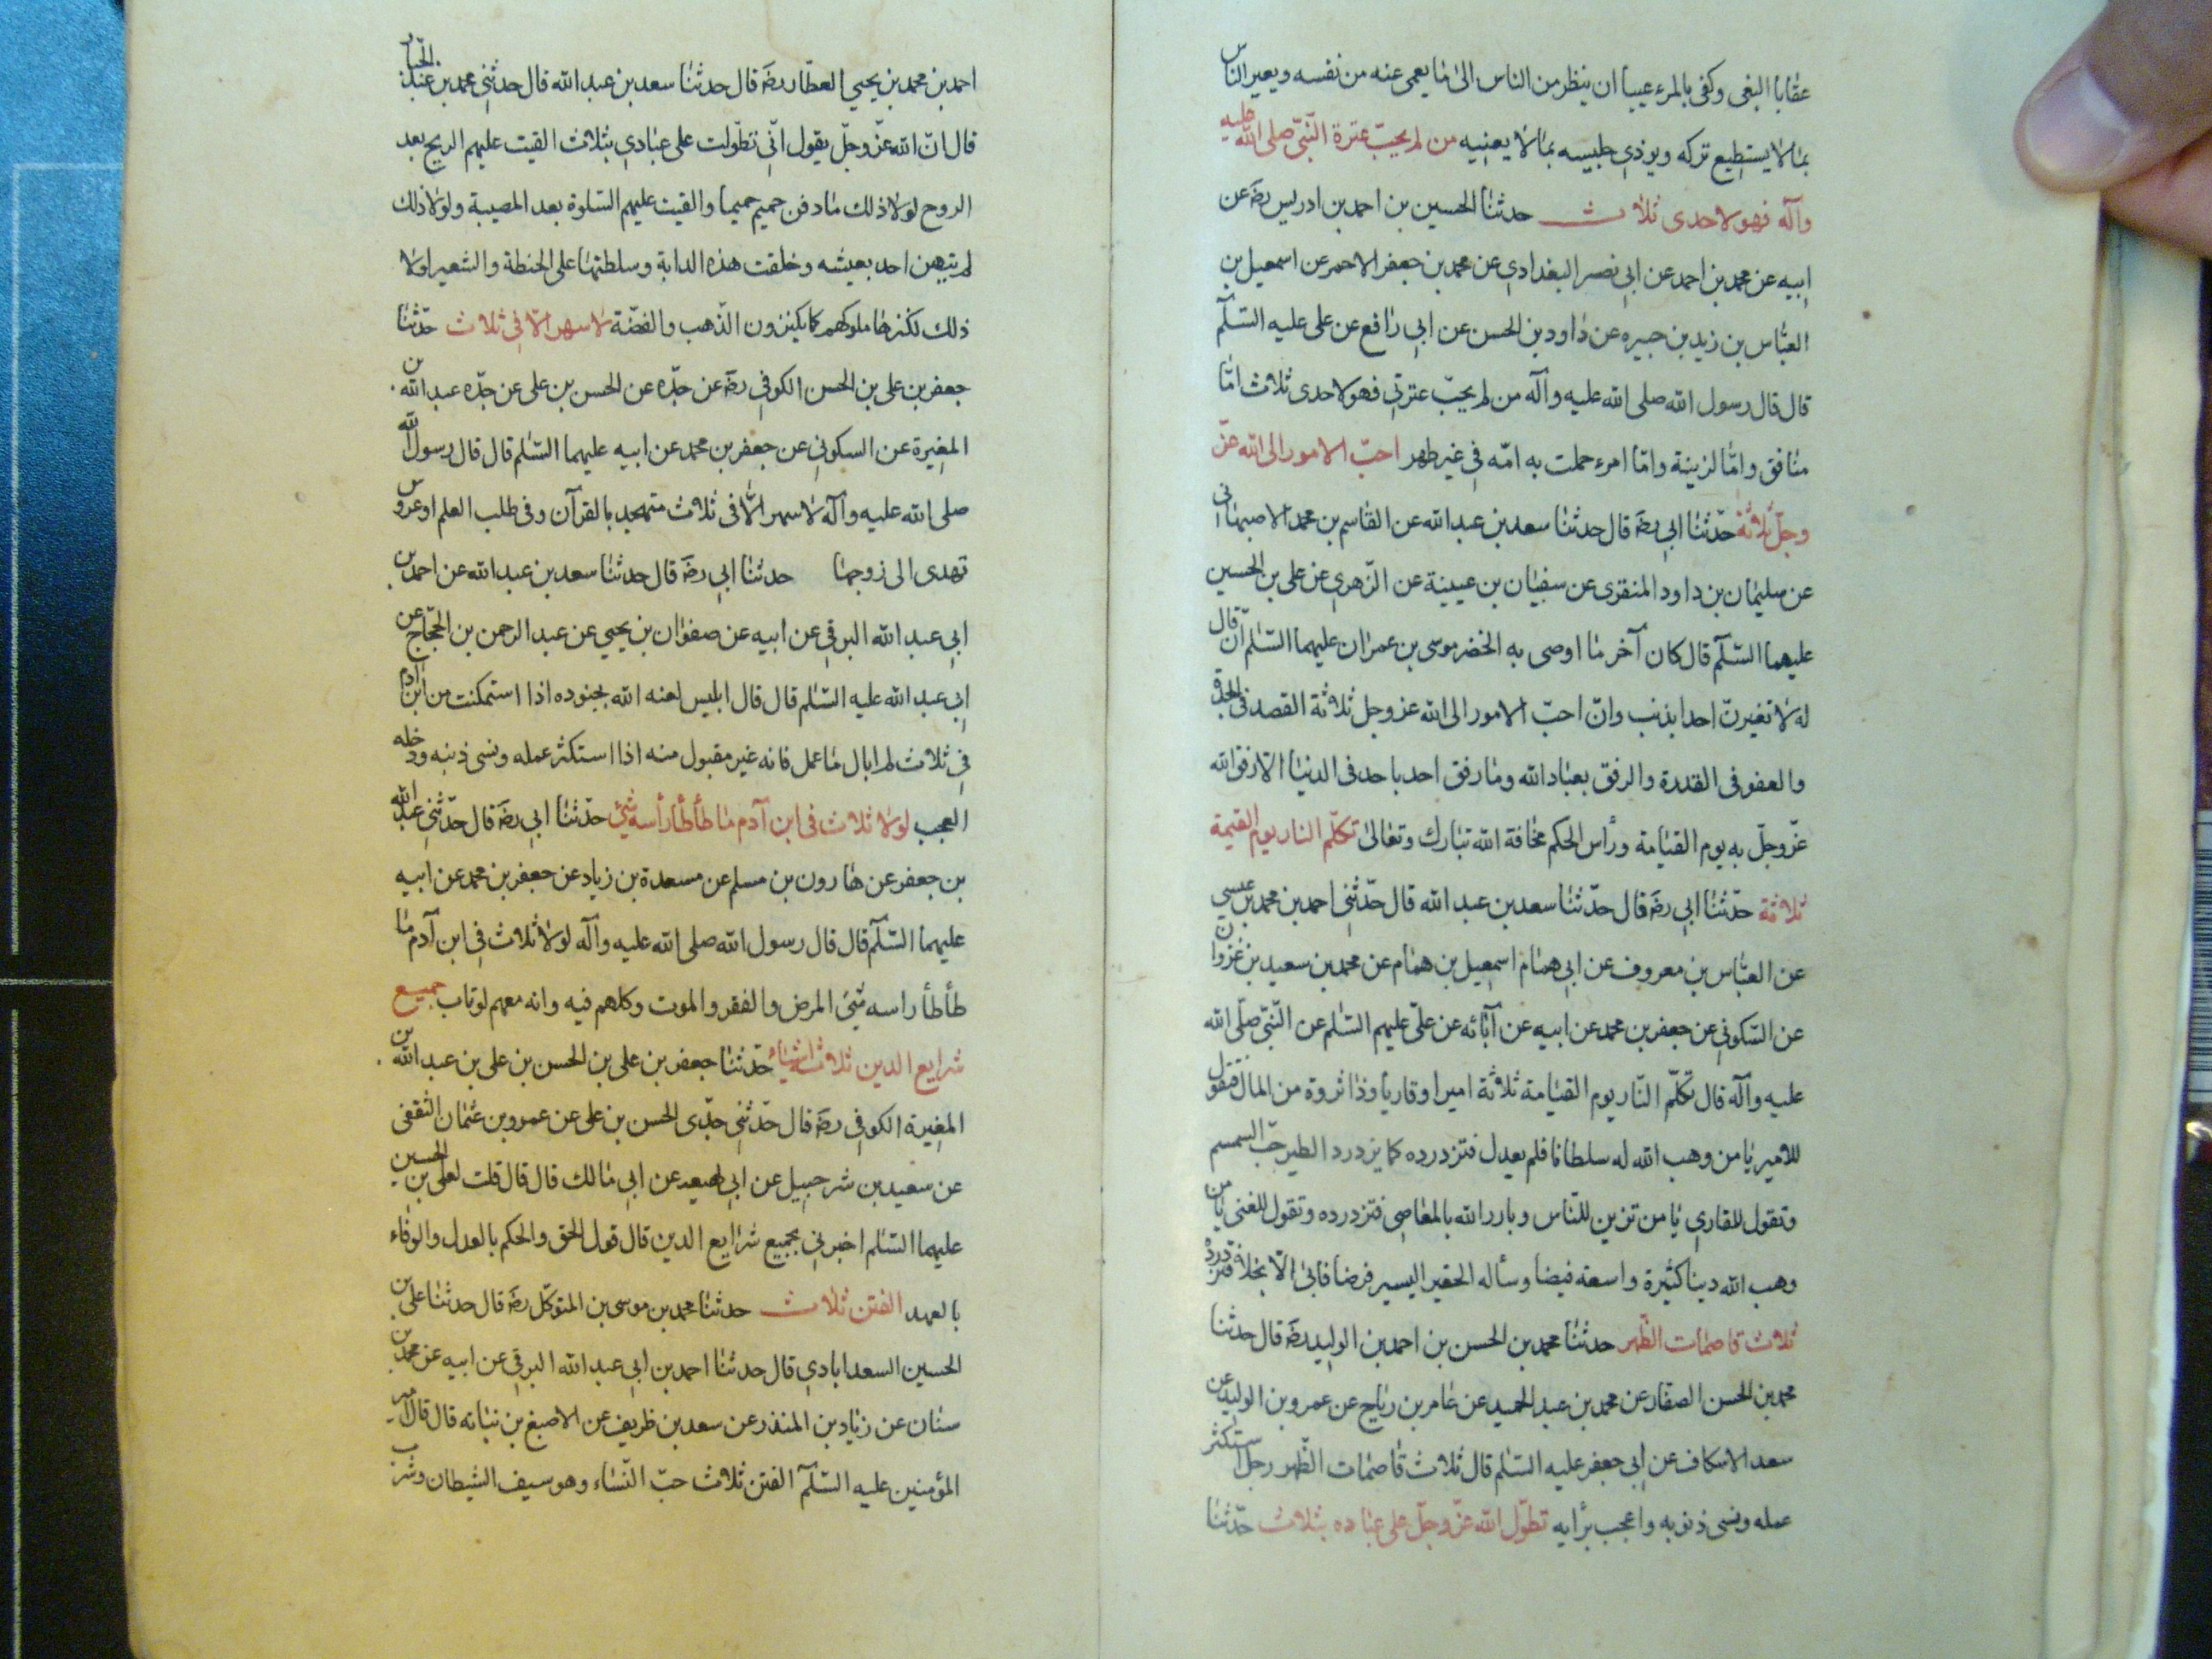 عقابا البغى وكفى بالمرء عيبا ان ينظر من الناس الى ما يعمى عنه من نفسه ويعير الناس
بما لا يستطيع تركه ويوذى جليسه بما لا يعنيه من لم يحبّ عترة النّبىّ صلى الله عليه
وآله فهو لاحدى ثلاث حدثنا الحسين بن احمد بن ادريس رضه عن
ابيه عن محمد بن احمد عن ابى نصر البغدادى عن محمد بن جعفر الاحمر عن اسمعيل بن
العبّاس بن زيد بن جبيره عن داود بن الحسن عن ابى رافع عن على عليه السّلم
قال قال رسول الله صلى الله عليه وآله من لم يحبّ عترتى فهو لاحدى ثلاث امّا
منافق وامّا لزنية وامّا امرء حملت به امّه فى غير طهر احبّ الامور الى الله عزّ
وجلّ ثلاثة حدّثنا ابى رضه قال حدثنا سعد بن عبد الله عن القاسم بن محمد الاصبهانى
عن سليمان بن داود المنقرى عن سفيان بن عيينة عن الزّهرى عن على بن الحسين
عليهما السّلم قال كان آخر ما اوصى به الخضر موسى بن عمران عليهما السّلم ان قال
له لا تعيرنّ احدا بذنب وانّ احبّ الامور الى الله عز وجل ثلاثة القصد فى الجدة
والعفو فى القدرة والرفق بعباد الله وما رفق احد باحد فى الدنيا الّا رفق الله
عزّ وجلّ به يوم القيامة ورأس الحكم مخافة الله تبارك وتعالى تكلّم النار يوم القيمة
ثلاثة حدّثنا ابى رضه قال حدّثنا سعد بن عبد الله قال حدّثنى احمد بن محمد بن عيسى
عن العبّاس بن معروف عن ابى همام اسمعيل بن همام عن محمد بن سعيد بن غزوان
عن السّكونى عن جعفر بن محمد عن ابيه عن آبائه عن علىّ عليهم السّلم عن النّبىّ صلّى الله
عليه وآله قال تكلّم النّار يوم القيامة ثلاثة اميرا وقاريا وذا ثروة من المال فتقول
للامير يا من وهب الله له سلطانا فلم يعدل فتزدرده كما يزدرد الطير حبّ السمسم
وتقول للقارى يا من تزين للنّاس وبارز الله بالمعاصى فتزدرده وتقول للغنى يا من
وهب الله دينا كثيرة واسعة فيضا وسأله الحقير اليسير فرضا فابى الّا بخلا فتزدرده
ثلاث قاصمات الظّهر حدثنا محمد بن الحسن بن احمد بن الوليد رضه قال حدثنا
محمد بن الحسن الصفّار عن محمد بن عبد الحميد عن عامر بن رياح عن عمرو بن الوليد عن
سعد الاسكاف عن ابى جعفر عليه السّلم قال ثلاث قاصمات الظّهر رجل استكثر
عمله ونسى ذنوبه واعجب برأيه تطوّل الله عزّ وجلّ على عباده بثلاث حدّثنا
احمد بن محمد بن يحيى العطّار رضه قال حدثنا سعد بن عبد الله قال حدثنى محمد بن عبد الجبّار
قال انّ الله عزّ وجلّ يقول انّى تطوّلت على عبادى بثلاث القيت عليهم الريح بعد
الروح لولا ذلك ما دفن حميم حميما والقيت عليهم السّلوة بعد المصيبة ولولا ذلك
لم يتهن احد بعيشه وخلقت هذه الدابة وسلطتها على الحنطة والشعير ولولا
ذلك لكنزها ملوكهم كما يكنزون الذّهب والفضّة لا سهر الّا فى ثلاث حدّثنا
جعفر بن على بن الحسن الكوفى رضه عن جدّه عن الحسن بن على عن جدّه عبد الله بن
المغيرة عن السكونى عن جعفر بن محمد عن ابيه عليهما السّلم قال قال رسول الله
صلى الله عليه وآله لا سهر الّا فى ثلاث متهجد بالقرآن وفى طلب العلم او عروس
تهدى الى زوجها حدثنا ابى رضه قال حدثنا سعد بن عبد الله عن احمد بن
ابى عبد الله البرقى عن ابيه عن صفوان بن يحيى عن عبد الرحمن بن الحجّاج عن
ابى عبد الله عليه السّلم قال قال ابليس لعنه الله لجنوده اذا استمكنت من ابن آدم
فى ثلاث لم ابال ما عمل فانه غير مقبول منه اذا استكثر عمله ونسى ذنبه ودخله
العجب لولا ثلاث فى ابن آدم ما طأطأ رأسه شئ حدّثنا ابى رضه قال حدّثنى عبد الله
بن جعفر عن هارون بن مسلم عن مسعدة بن زياد عن جعفر بن محمد عن ابيه
عليهما السّلم قال قال رسول الله صلى الله عليه وآله لولا ثلاث فى ابن آدم ما
طأطأ راسه شئ المرض والفقر والموت وكلهم فيه وانه معهم لوثاب جميع
شرايع الدين ثلاثة اشياء حدّثنا جعفر بن على بن الحسن بن على بن عبد الله بن
المغيرة الكوفى رضه قال حدّثنى جدّى الحسن بن على عن عمرو بن عثمان الثقفى
عن سعيد بن شرحبيل عن ابى لهيعه عن ابى مالك قال قال قلت لعلى بن الحسين
عليهما السّلم اخبرنى بجميع شرايع الدين قال قول الحق والحكم بالعدل والوفاء
بالعهد الفتن ثلاث حدثنا محمد بن موسى بن المتوكّل رضه قال حدثنا على بن
الحسين السعدابادى قال حدثنا احمد بن ابى عبد الله البرقى عن ابيه عن محمد بن
سنان عن زياد بن المنذر عن سعد بن ظريف عن الاصبغ بن نباته قال قال امير
المؤمنين عليه السّلم الفتن ثلاث حبّ النّساء وهو سيف الشيطان وشرب